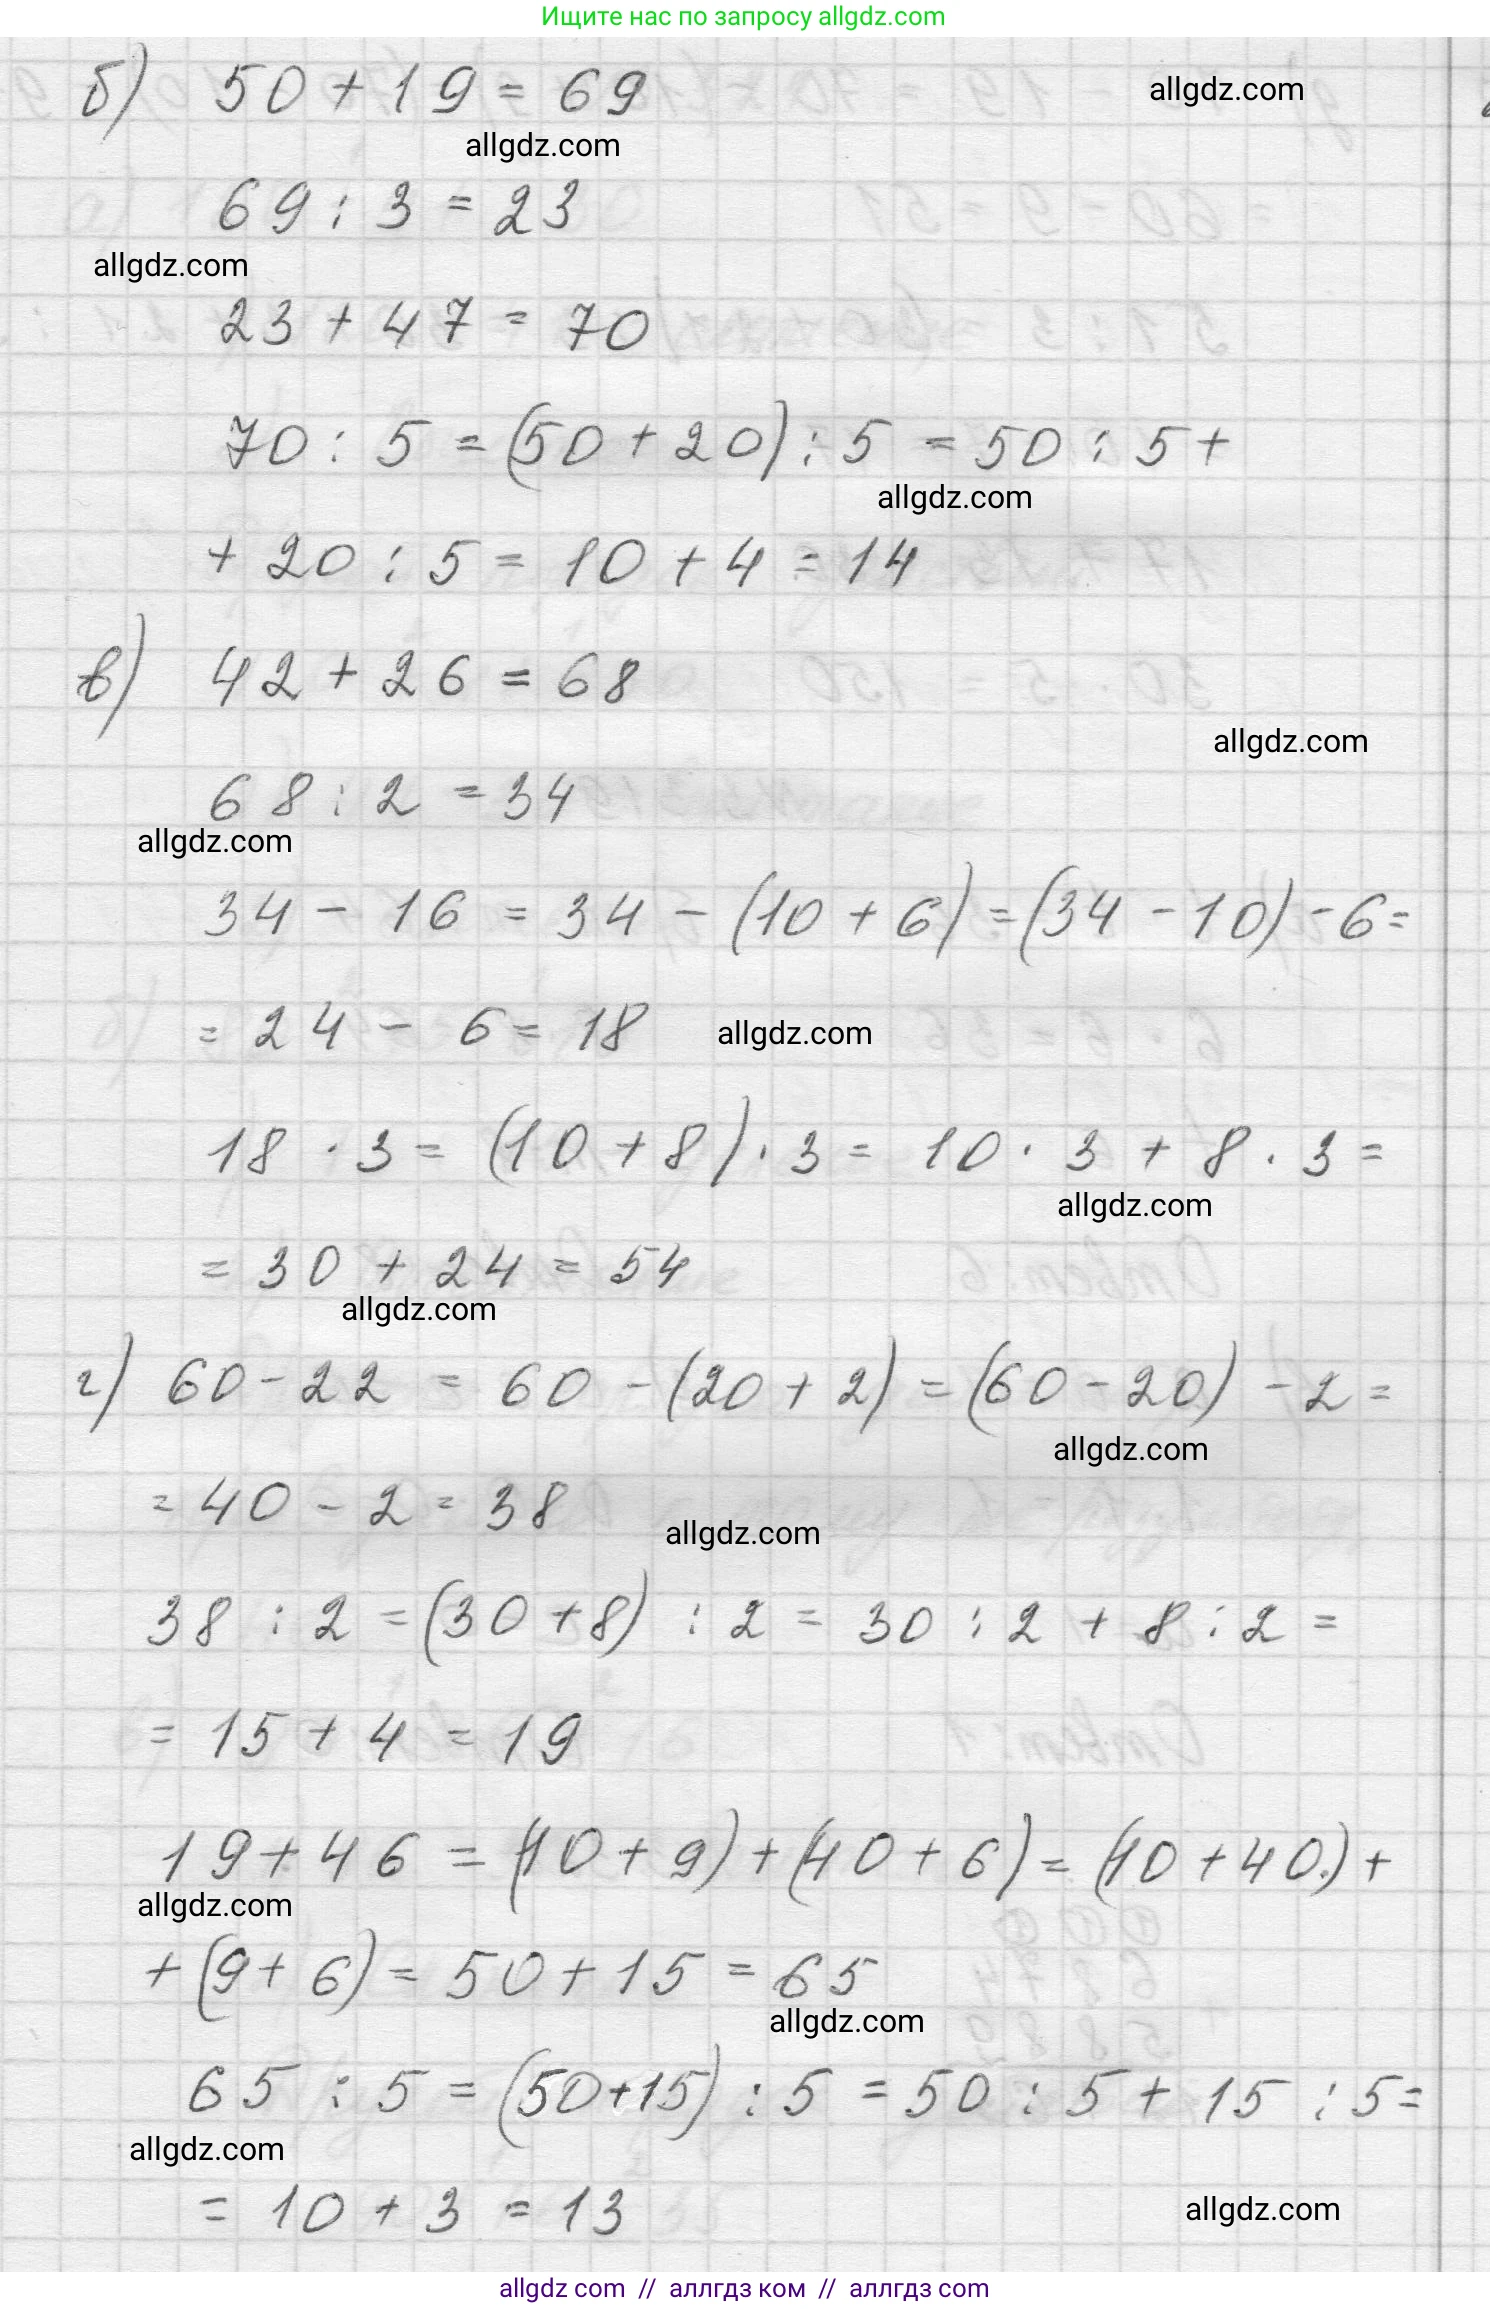 Ищите нас по запросу allgdz.com
б) 50 + 19 = 69
allgdz.com
allgdz.com
69 : 3 = 23
allgdz.com
23 + 47 = 70
70 : 5 = (50 + 20) : 5 = 50 : 5 +
allgdz.com
+ 20 : 5 = 10 + 4 = 14
в) 42 + 26 = 68
allgdz.com
68 : 2 = 34
allgdz.com
34 - 16 = 34 - (10 + 6) = (34 - 10) - 6 =
= 24 - 6 = 18
allgdz.com
18 · 3 = (10 + 8) · 3 = 10 · 3 + 8 · 3 =
allgdz.com
= 30 + 24 = 54
allgdz.com
г) 60 - 22 = 60 - (20 + 2) = (60 - 20) - 2 =
allgdz.com
= 40 - 2 = 38
allgdz.com
38 : 2 = (30 + 8) : 2 = 30 : 2 + 8 : 2 =
= 15 + 4 = 19
19 + 46 = (10 + 9) + (40 + 6) = (10 + 40) +
allgdz.com
+ (9 + 6) = 50 + 15 = 65
allgdz.com
65 : 5 = (50 + 15) : 5 = 50 : 5 + 15 : 5 =
allgdz.com
= 10 + 3 = 13
allgdz.com
allgdz com // аллгдз ком // аллгдз com